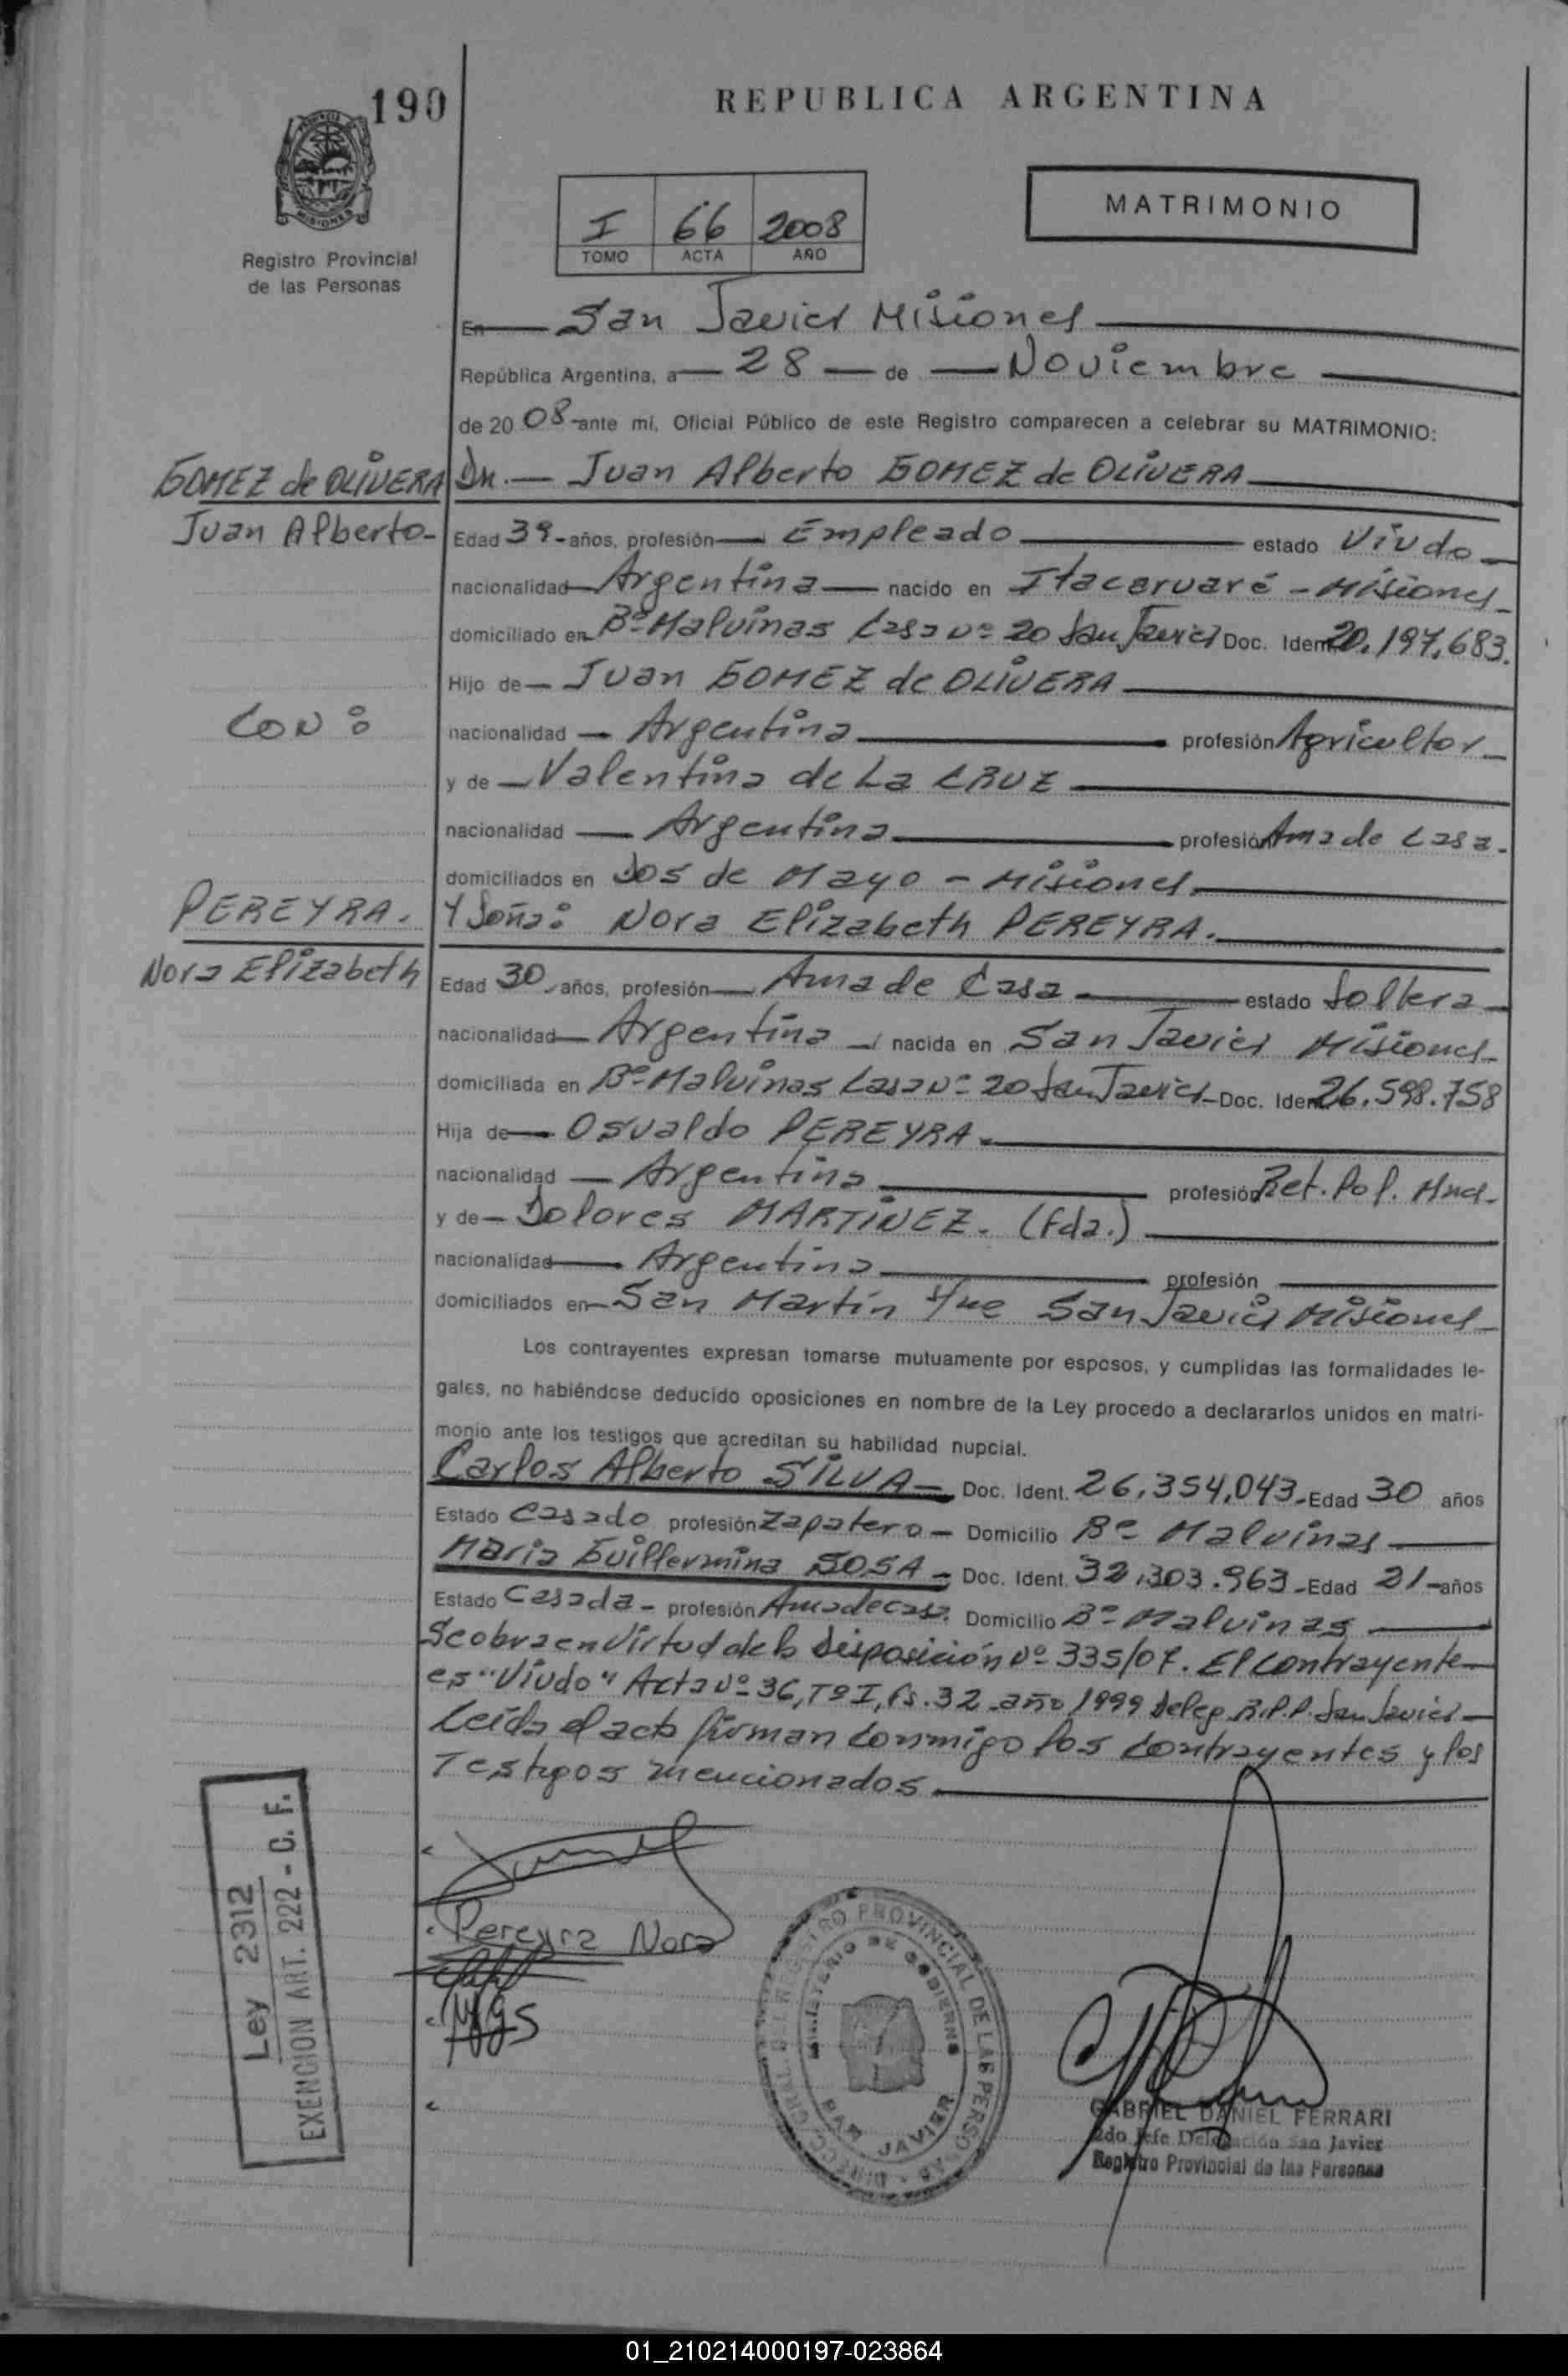 190
REPUBLICA ARGENTINA
MISIONES
Registro Provincial
de las Personas
I 66 2008
TOMO ACTA AÑO
MATRIMONIO
En San Javier Misiones
República Argentina, a 28 de Noviembre
de 20 08 -ante mí, Oficial Público de este Registro comparecen a celebrar su MATRIMONIO:
GOMEZ de OLIVERA
Juan Alberto-
Dn. Juan Alberto GOMEZ de OLIVERA
Edad 39-años, profesión Empleado estado Viudo
nacionalidad Argentina nacido en Itacaruaré - Misiones
domiciliado en Bº Malvinas Casa Nº 20 San Javier Doc. Ident. 20.197.683.
Hijo de Juan GOMEZ de OLIVERA
CON:
nacionalidad Argentina profesión Agricultor
y de Valentina de La CRUZ
nacionalidad Argentina profesión Ama de Casa.
domiciliados en Dos de Mayo - Misiones.
PEREYRA.
Nora Elizabeth
Y Doña: Nora Elizabeth PEREYRA.
Edad 30 años, profesión Ama de Casa estado Soltera
nacionalidad Argentina nacida en San Javier Misiones
domiciliada en Bº Malvinas Casa Nº 20 San Javier Doc. Ident. 26.598.758
Hija de Osvaldo PEREYRA.
nacionalidad Argentina profesión Ret. Pol. Mnes.
y de Dolores MARTINEZ. (Fda.)
nacionalidad Argentina profesión
domiciliados en San Martín San Javier Misiones
Los contrayentes expresan tomarse mutuamente por esposos, y cumplidas las formalidades le-
gales, no habiéndose deducido oposiciones en nombre de la Ley procedo a declararlos unidos en matri-
monio ante los testigos que acreditan su habilidad nupcial.
Carlos Alberto SILVA- Doc. Ident. 26.354.043. Edad 30 años
Estado Casado profesión Zapatero - Domicilio Bº Malvinas
Maria Guillermina SOSA- Doc. Ident. 32.303.963 - Edad 21-años
Estado Casada - profesión Ama de casa. Domicilio Bº Malvinas
Se obra en Virtud de la Disposición Nº 335/07. El contrayente
es "Viudo" Acta Nº 36, Tº I, fs. 32 año 1999 Deleg. R.P.P. San Javier
Leída el acta firman conmigo los contrayentes y los
Testigos mencionados.
Ley 2312
EXENCION ART. 222 - C. F.
Pereyra Nora
MGS
DIRECC. GRAL. DEL REGISTRO PROVINCIAL DE LAS PERSONAS
MINISTERIO DE GOBIERNO
SAN JAVIER
GABRIEL DANIEL FERRARI
2do Jefe Delegación San Javier
Registro Provincial de las Personas
01_210214000197-023864